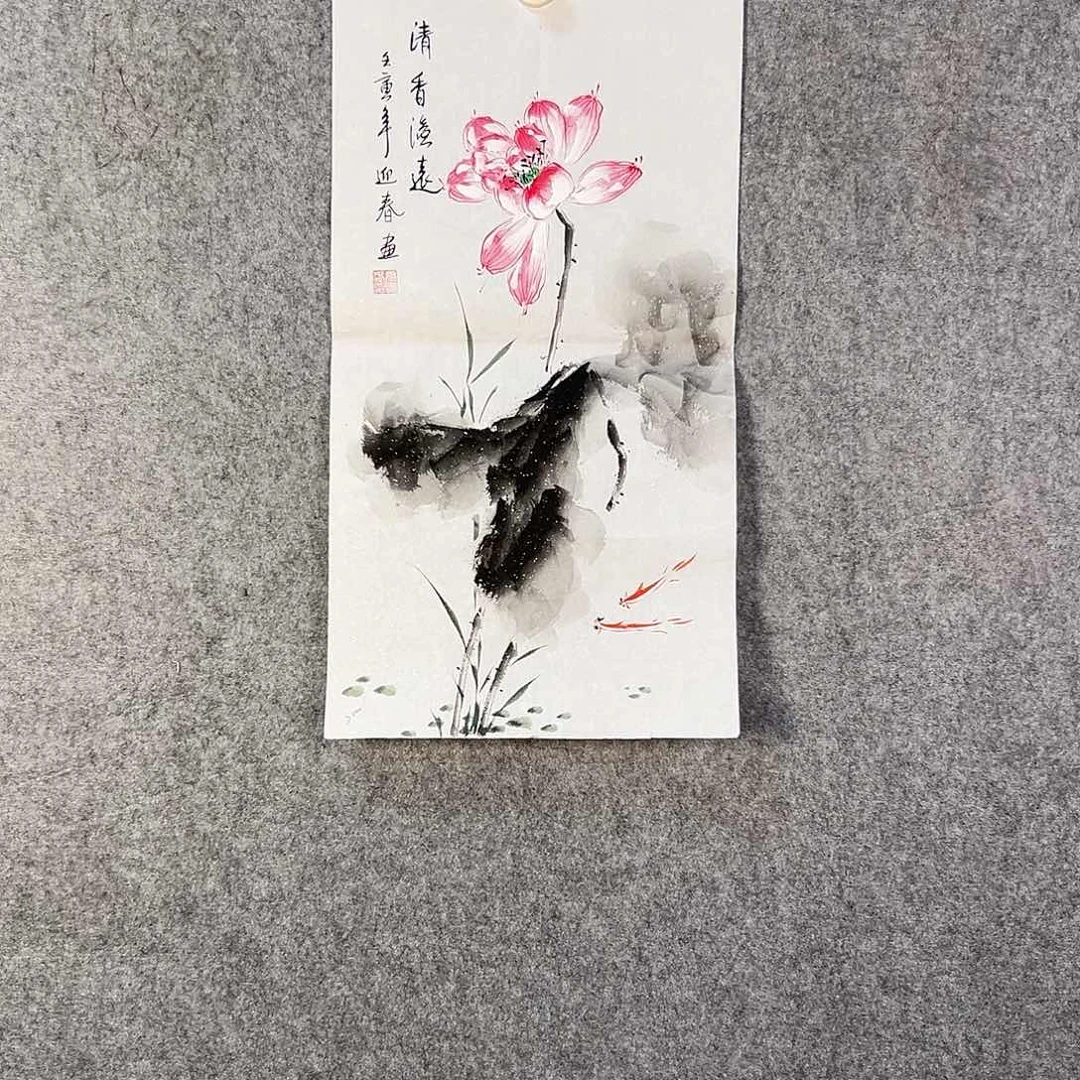 清香溢遠
壬寅年迎春画